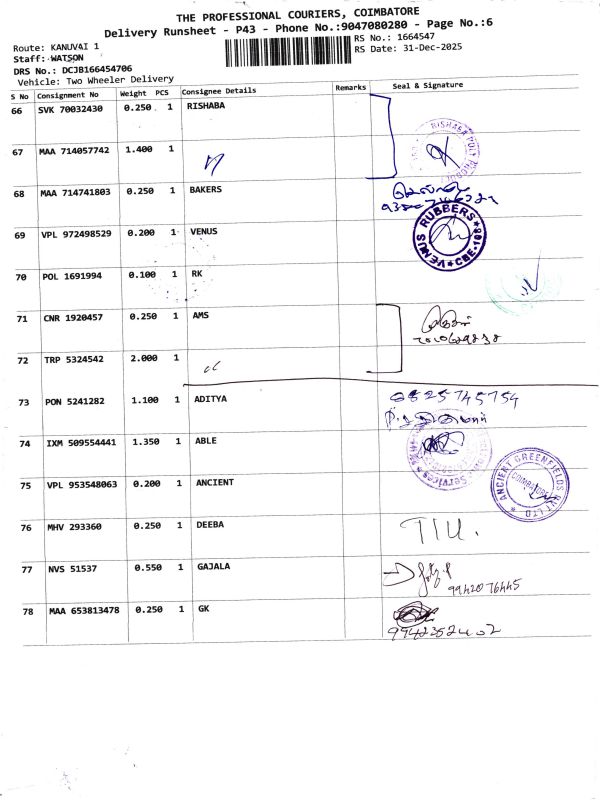 THE PROFESSIONAL COURIERS, COIMBATORE
Delivery Runsheet - P43 - Phone No.:9047080280 - Page No.:6
Route: KANUVAI 1
RS No.: 1664547
Staff: WATSON
RS Date: 31-Dec-2025
DRS No.: DCJB166454706
Vehicle: Two Wheeler Delivery
S No Consignment No Weight PCS Consignee Details Remarks Seal & Signature
66 SVK 70032430 0.250 1 RISHABA
67 MAA 714057742 1.400 1
68 MAA 714741803 0.250 1 BAKERS
69 VPL 972498529 0.200 1 VENUS
VENUS RUBBERS ★ CBE-108 ★
70 POL 1691994 0.100 1 RK
71 CNR 1920457 0.250 1 AMS
72 TRP 5324542 2.000 1
73 PON 5241282 1.100 1 ADITYA
74 IXM 509554441 1.350 1 ABLE
75 VPL 953548063 0.200 1 ANCIENT
ANCIENT GREENFIELDS PVT LTD
COIMBATORE
76 MHV 293360 0.250 1 DEEBA
77 NVS 51537 0.550 1 GAJALA
9942076445
78 MAA 653813478 0.250 1 GK